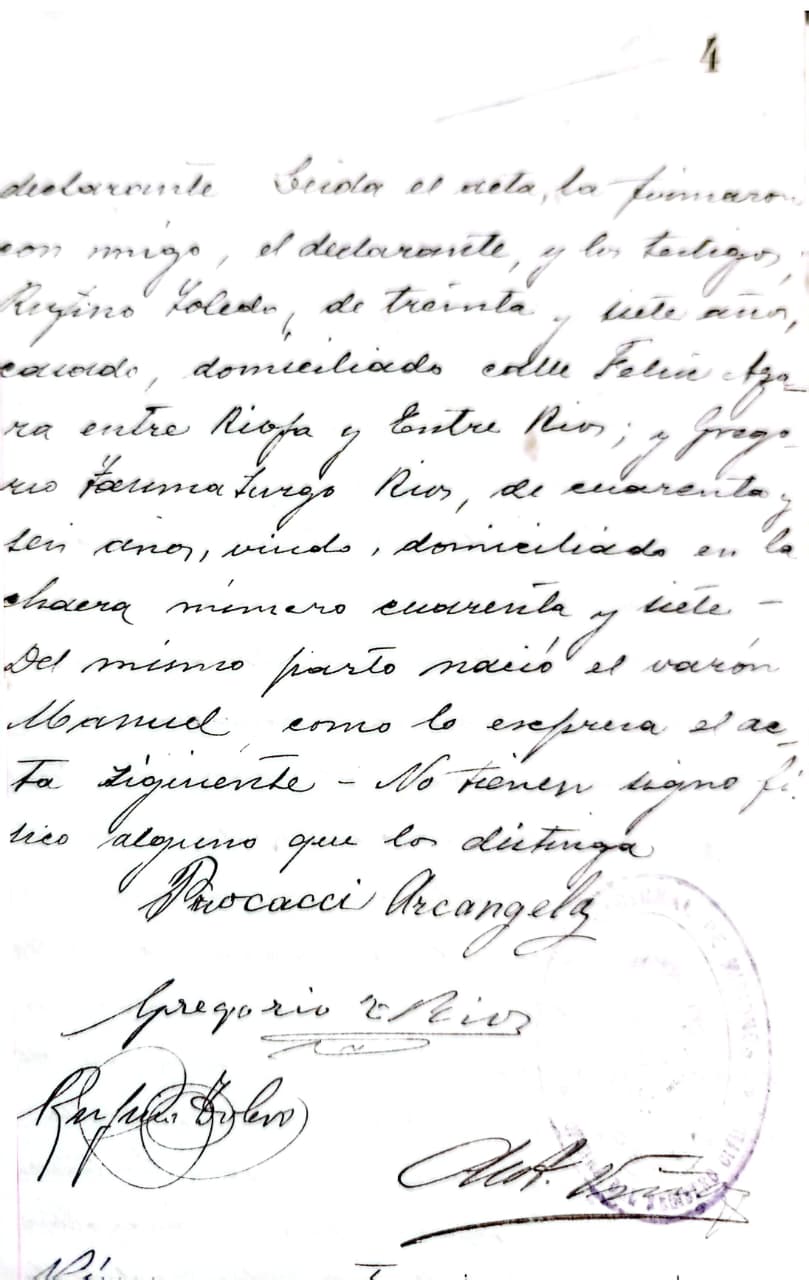 4
declarante Leida el acta, la firmaron
con migo, el declarante, y los testigos,
Rufino Toledo, de treinta y siete años,
casado, domiciliado calle Felix Aza-
ra entre Rioja y Entre Rios; y Grego-
rio Taumaturgo Rios, de cuarenta y
seis años, viudo, domiciliado en la
chacra número cuarenta y siete -
Del mismo parto nació el varón
Manuel, como lo expresa el ac-
ta siguiente - No tienen signo fí-
sico alguno que los distinga
Procacci Arcangelo
Gregorio T Rios
Rufino Toledo
REGISTRO CIVIL